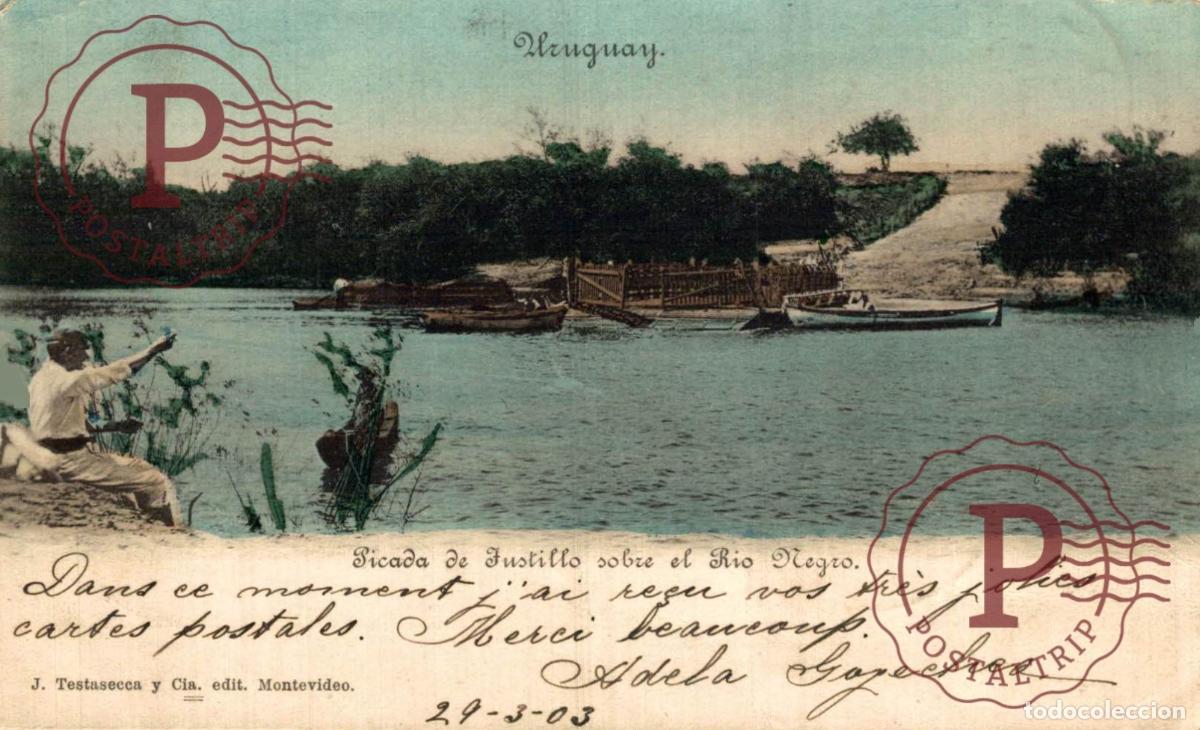 Uruguay.
P
POSTALTRIP
Picada de Fustillo sobre el Rio Negro.
Dans ce moment j'ai reçu vos très jolies
cartes postales. Merci beaucoup.
Adela
J. Testasecca y Cia. edit. Montevideo.
29-3-03
P
POSTALTRIP
todocoleccion